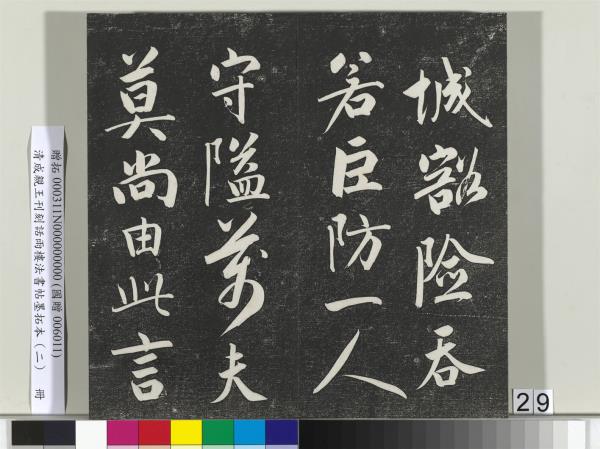 城豁險吞
若巨防一人
守隘萬夫
莫尚由此言
贈拓 000311N000000000 (國贈 006011)
清成親王刊刻話雨樓法書帖墨拓本（二） 冊
29